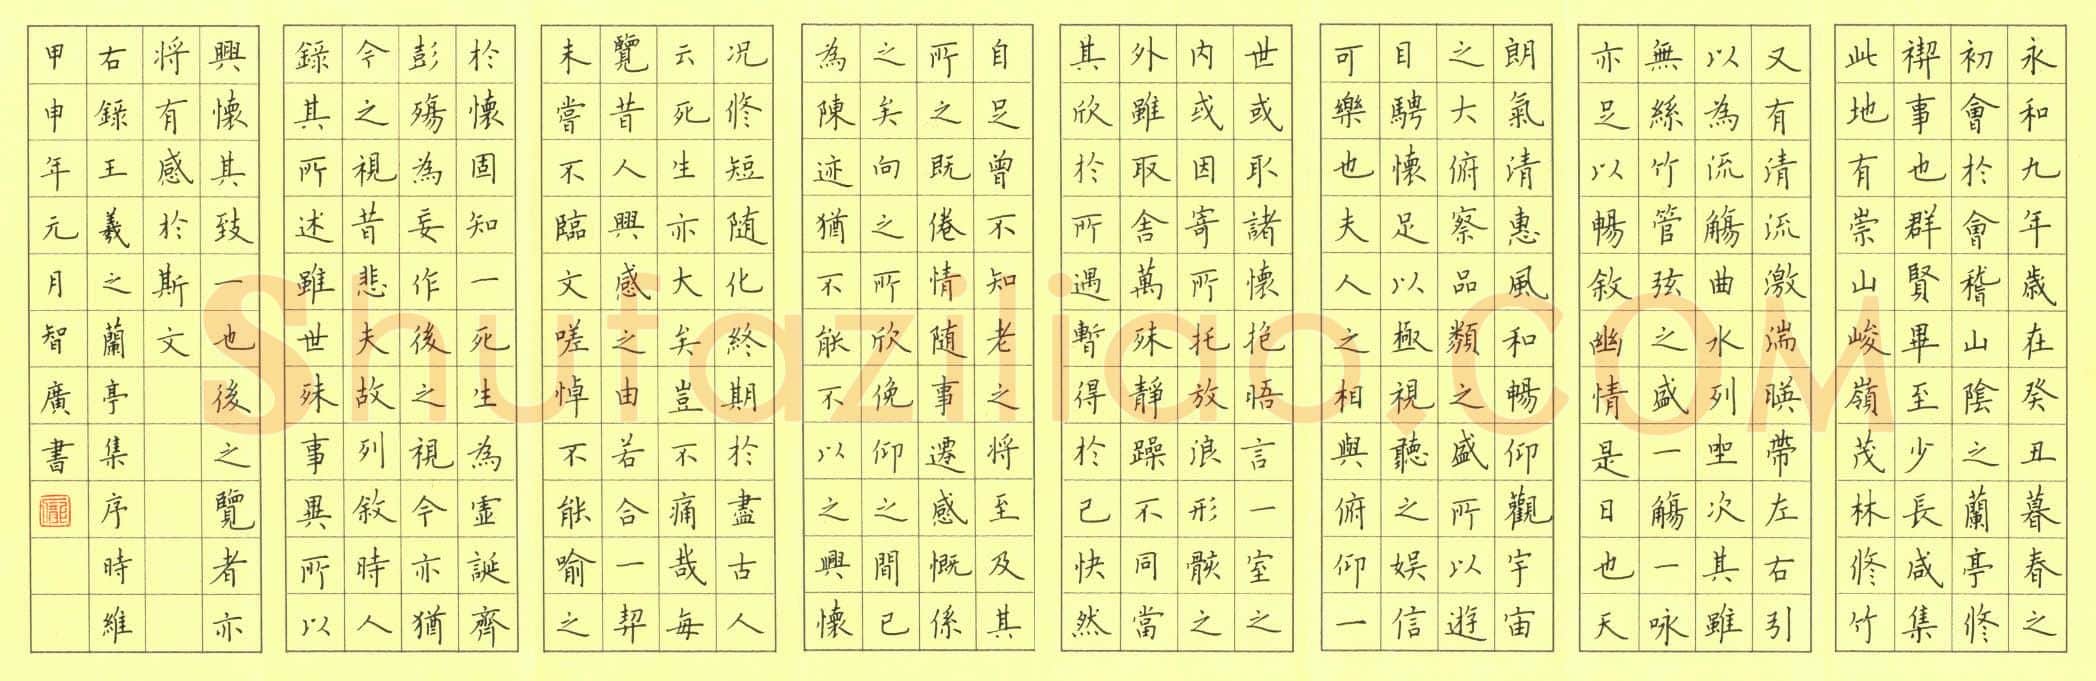 永和九年歲在癸丑暮春之
初會於會稽山陰之蘭亭修
禊事也群賢畢至少長咸集
此地有崇山峻嶺茂林修竹
又有清流激湍暎帶左右引
以為流觴曲水列坐次其雖
無絲竹管弦之盛一觴一咏
亦足以暢敘幽情是日也天
朗氣清惠風和暢仰觀宇宙
之大俯察品類之盛所以遊
目騁懷足以極視聽之娛信
可樂也夫人之相與俯仰一
世或取諸懷抱悟言一室之
内或因寄所托放浪形骸之
外雖取舍萬殊靜躁不同當
其欣於所遇暫得於己快然
自足曾不知老之將至及其
所之既倦情随事遷感慨係
之矣向之所欣俛仰之間已
為陳迹猶不能不以之興懷
况修短随化終期於盡古人
云死生亦大矣豈不痛哉每
覽昔人興感之由若合一契
未嘗不臨文嗟悼不能喻之
於懷固知一死生為虛誕齊
彭殤為妄作後之視今亦猶
今之視昔悲夫故列敘時人
錄其所述雖世殊事異所以
興懷其致一也後之覽者亦
將有感於斯文
右錄王羲之蘭亭集序時維
甲申年元月智廣書
Shufaziliao.COM